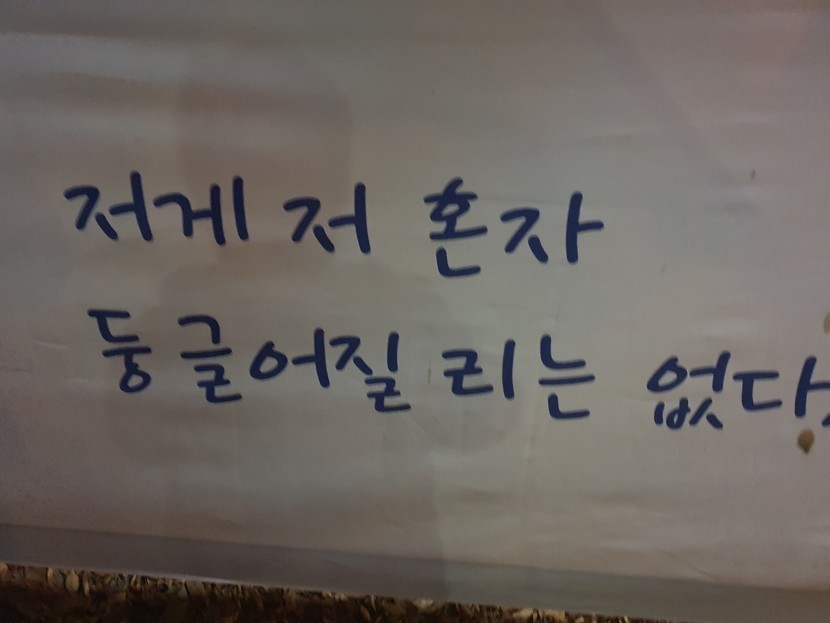 저게 저 혼자
둥글어질 리는 없다.